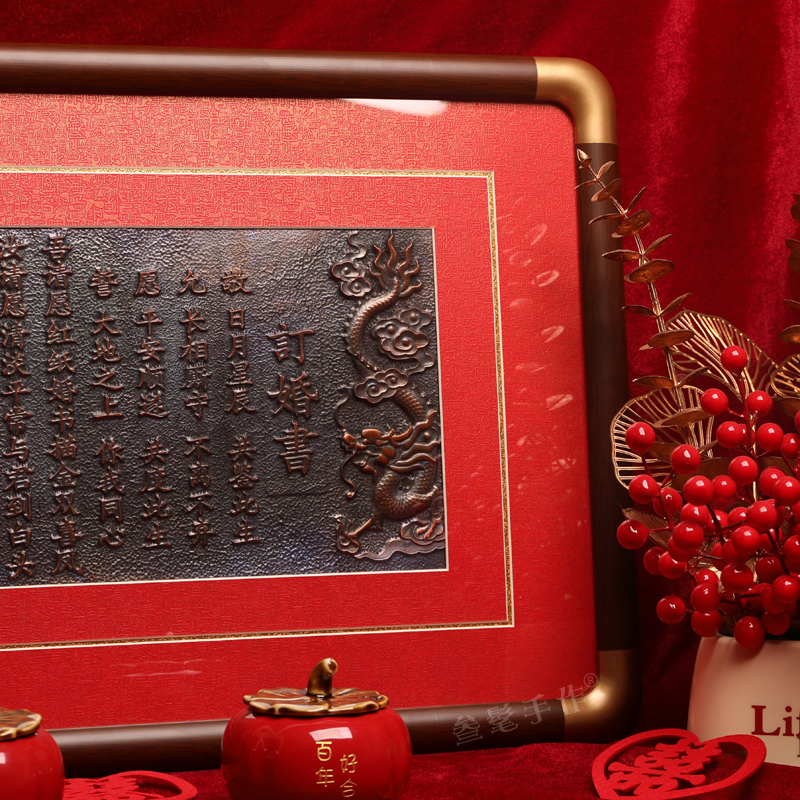 訂婚書
故日月星辰 共鉴此生
允长相厮守 不离不弃
愿平安顺遂 共度此生
誓大地之上 你我同心
吾清愿红纸婚书描金双喜风
清愿清淡平常与君到白头
百年
好合
叁髦手作®
囍